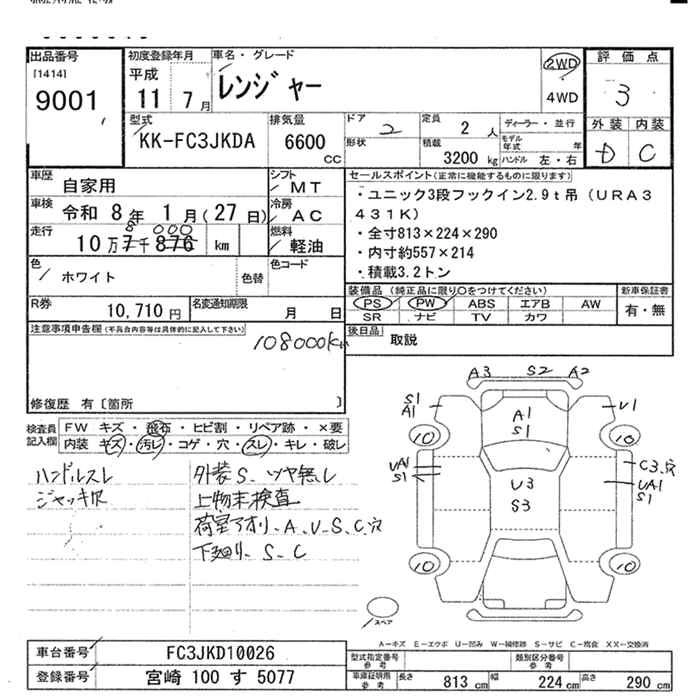 出品番号
[1414]
9001
初度登録年月
平成
11 7月
車名・グレード
レンジャー
2WD
4WD
評価点
3
型式
KK-FC3JKDA
排気量
6600
CC
ドア
2
形状
定員
2 人
積載
3200 kg
ディーラー・並行
モデル年式 年
ハンドル 左・右
外装 内装
D C
車歴
自家用
シフト
MT
車検
令和 8年 1月(27日)
冷房
AC
走行
8 000
10万7千876 km
燃料
軽油
色
ホワイト
色替
色コード
R券
10,710 円
名変通知期限
月 日
セールスポイント(正常に機能するものに限ります)
・ユニック3段フックイン2.9t吊(URA3
431K)
・全寸813×224×290
・内寸約557×214
・積載3.2トン
装備品 (純正品に限り〇をつけてください)
PS PW ABS エアB AW
SR ナビ TV カワ
新車保証書
有・無
後日品
取説
注意事項申告欄(不具合内容等は具体的に記入して下さい)
108000Km
修復歴 有〔箇所 〕
検査員
記入欄
FW キズ・飛石・ヒビ割・リペア跡・×要
内装 キズ・汚レ・コゲ・穴・スレ・キレ・破レ
ハンドルスレ
ジャッキ欠
外装S、ツヤ無し
上物未検査
荷室アオリ、A、U、S、C、穴
下廻り、S、C
A3 S2 A2
S1
A1
U1
A1
S1
10
10
UA1
S1
U3
S3
C3.穴
UA1
S1
10
10
スペア
A-キズ E-エクボ U-凹み W-補修跡 S-サビ C-腐食 XX-交換済
車台番号
FC3JKD10026
登録番号
宮崎 100 す 5077
型式指定番号
参考
類別区分番号
参考
車庫証明用
参考
長さ
813 cm
幅
224 cm
高さ
290 cm